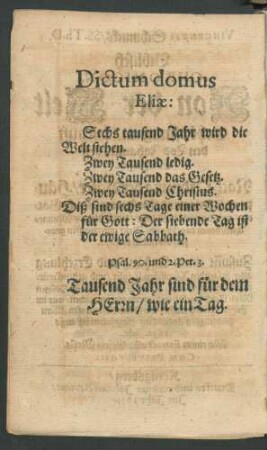 Dictum domus
Eliæ:
Sechs tausend Jahr wird die
Welt stehen.
Zwey Tausend ledig.
Zwey Tausend das Gesetz.
Zwey Tausend Christus.
Diß sind sechs Tage einer Wochen
für Gott: Der siebende Tag ist
der ewige Sabbath.
Psal. 90. und 2. Pet. 3.
Tausend Jahr sind für dem
HErrn/ wie ein Tag.